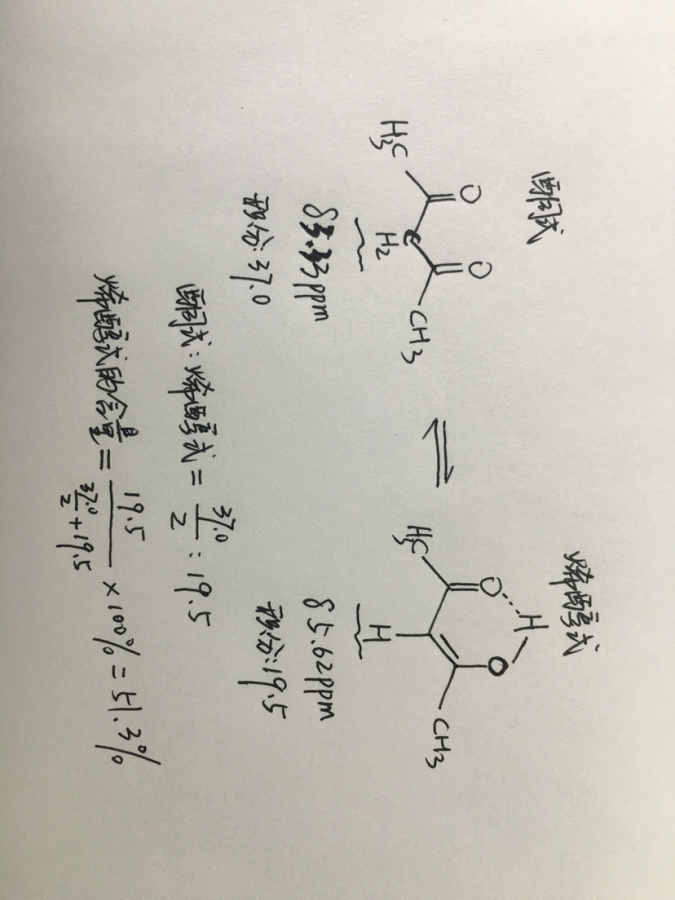 酮式
烯醇式
H₃C
O
O
CH₃
H₂
C
⇌
H₃C
O
H
O
CH₃
H
δ3.33ppm
积分:37.0
δ5.62ppm
积分:19.5
酮式:烯醇式 = 37.0/2 : 19.5
烯醇式的含量 = 19.5/(37.0/2 + 19.5) × 100% = 51.3%